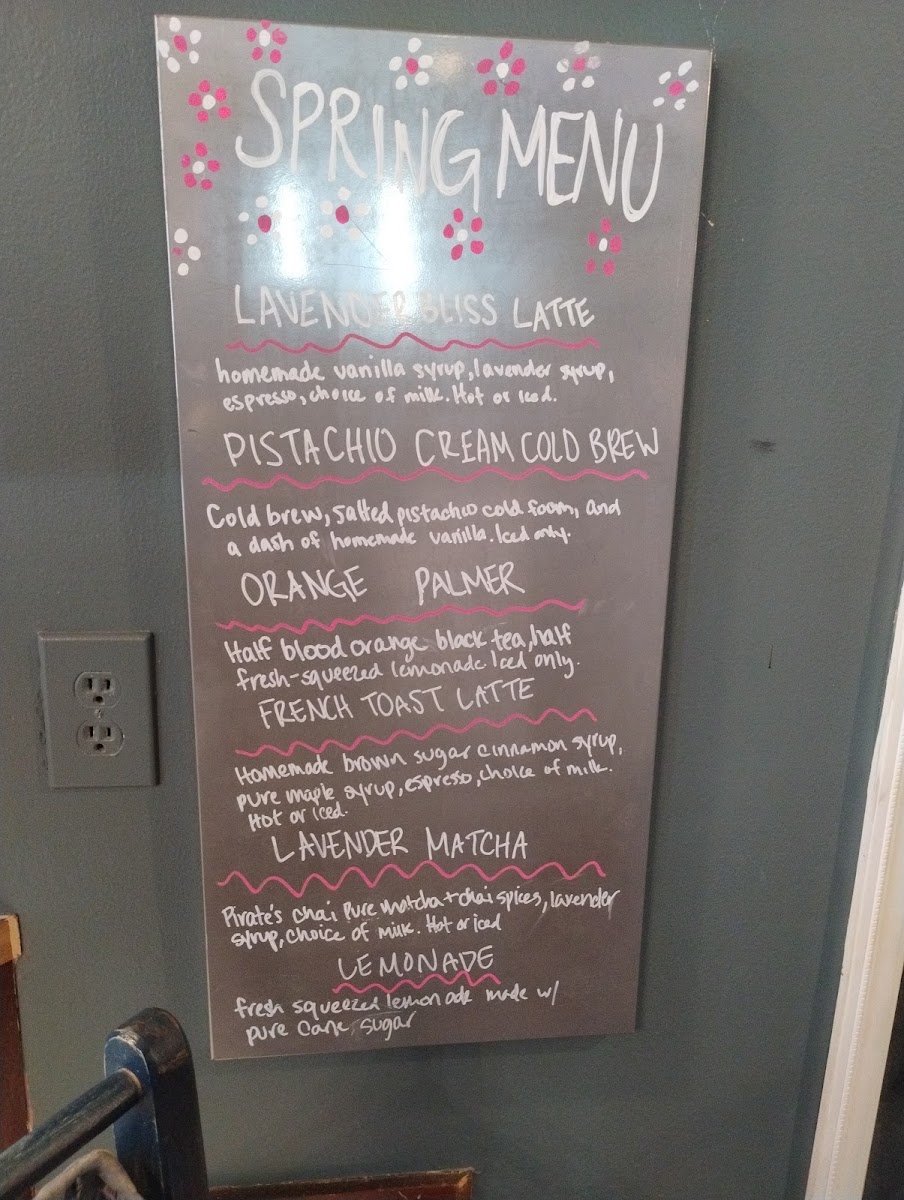 SPRING MENU
LAVENDER BLISS LATTE
homemade vanilla syrup, lavender syrup,
espresso, choice of milk. Hot or Iced.
PISTACHIO CREAM COLD BREW
Cold brew, salted pistachio cold foam, and
a dash of homemade vanilla. Iced only.
ORANGE PALMER
Half blood orange black tea, half
fresh-squeezed lemonade Iced only.
FRENCH TOAST LATTE
Homemade brown sugar cinnamon syrup,
pure maple syrup, espresso, choice of milk.
Hot or iced.
LAVENDER MATCHA
Pirate's chai pure matcha + chai spices, lavender
syrup, choice of milk. Hot or iced
LEMONADE
fresh squeezed lemonade made w/
pure cane sugar